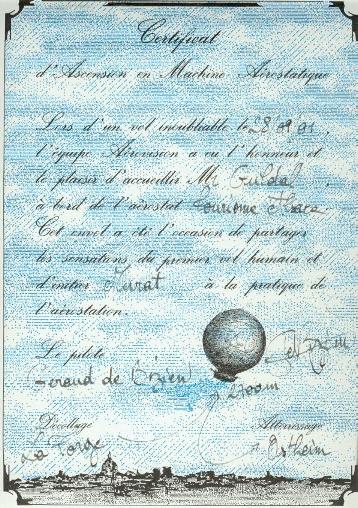 Certificat
d'Ascension en Machine Aérostatique
Lors d'un vol inoubliable le 28 09 91,
l'équipe Aérovision a eu l'honneur et
le plaisir d'accueillir Mr Guldal,
à bord de l'aérostat
Cet envol a été l'occasion de partager
les sensations du premier vol humain et
d'initier Murat à la pratique de
l'aérostation.
Le pilote
Geraud de
2700m
Décollage Atterrissage
La Forge Ostheim